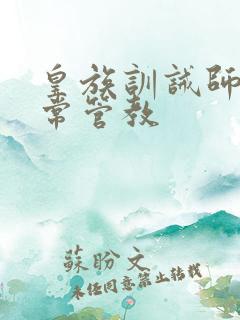 皇族訓誡師
常管教
蘇盼文
未经同意禁止转载